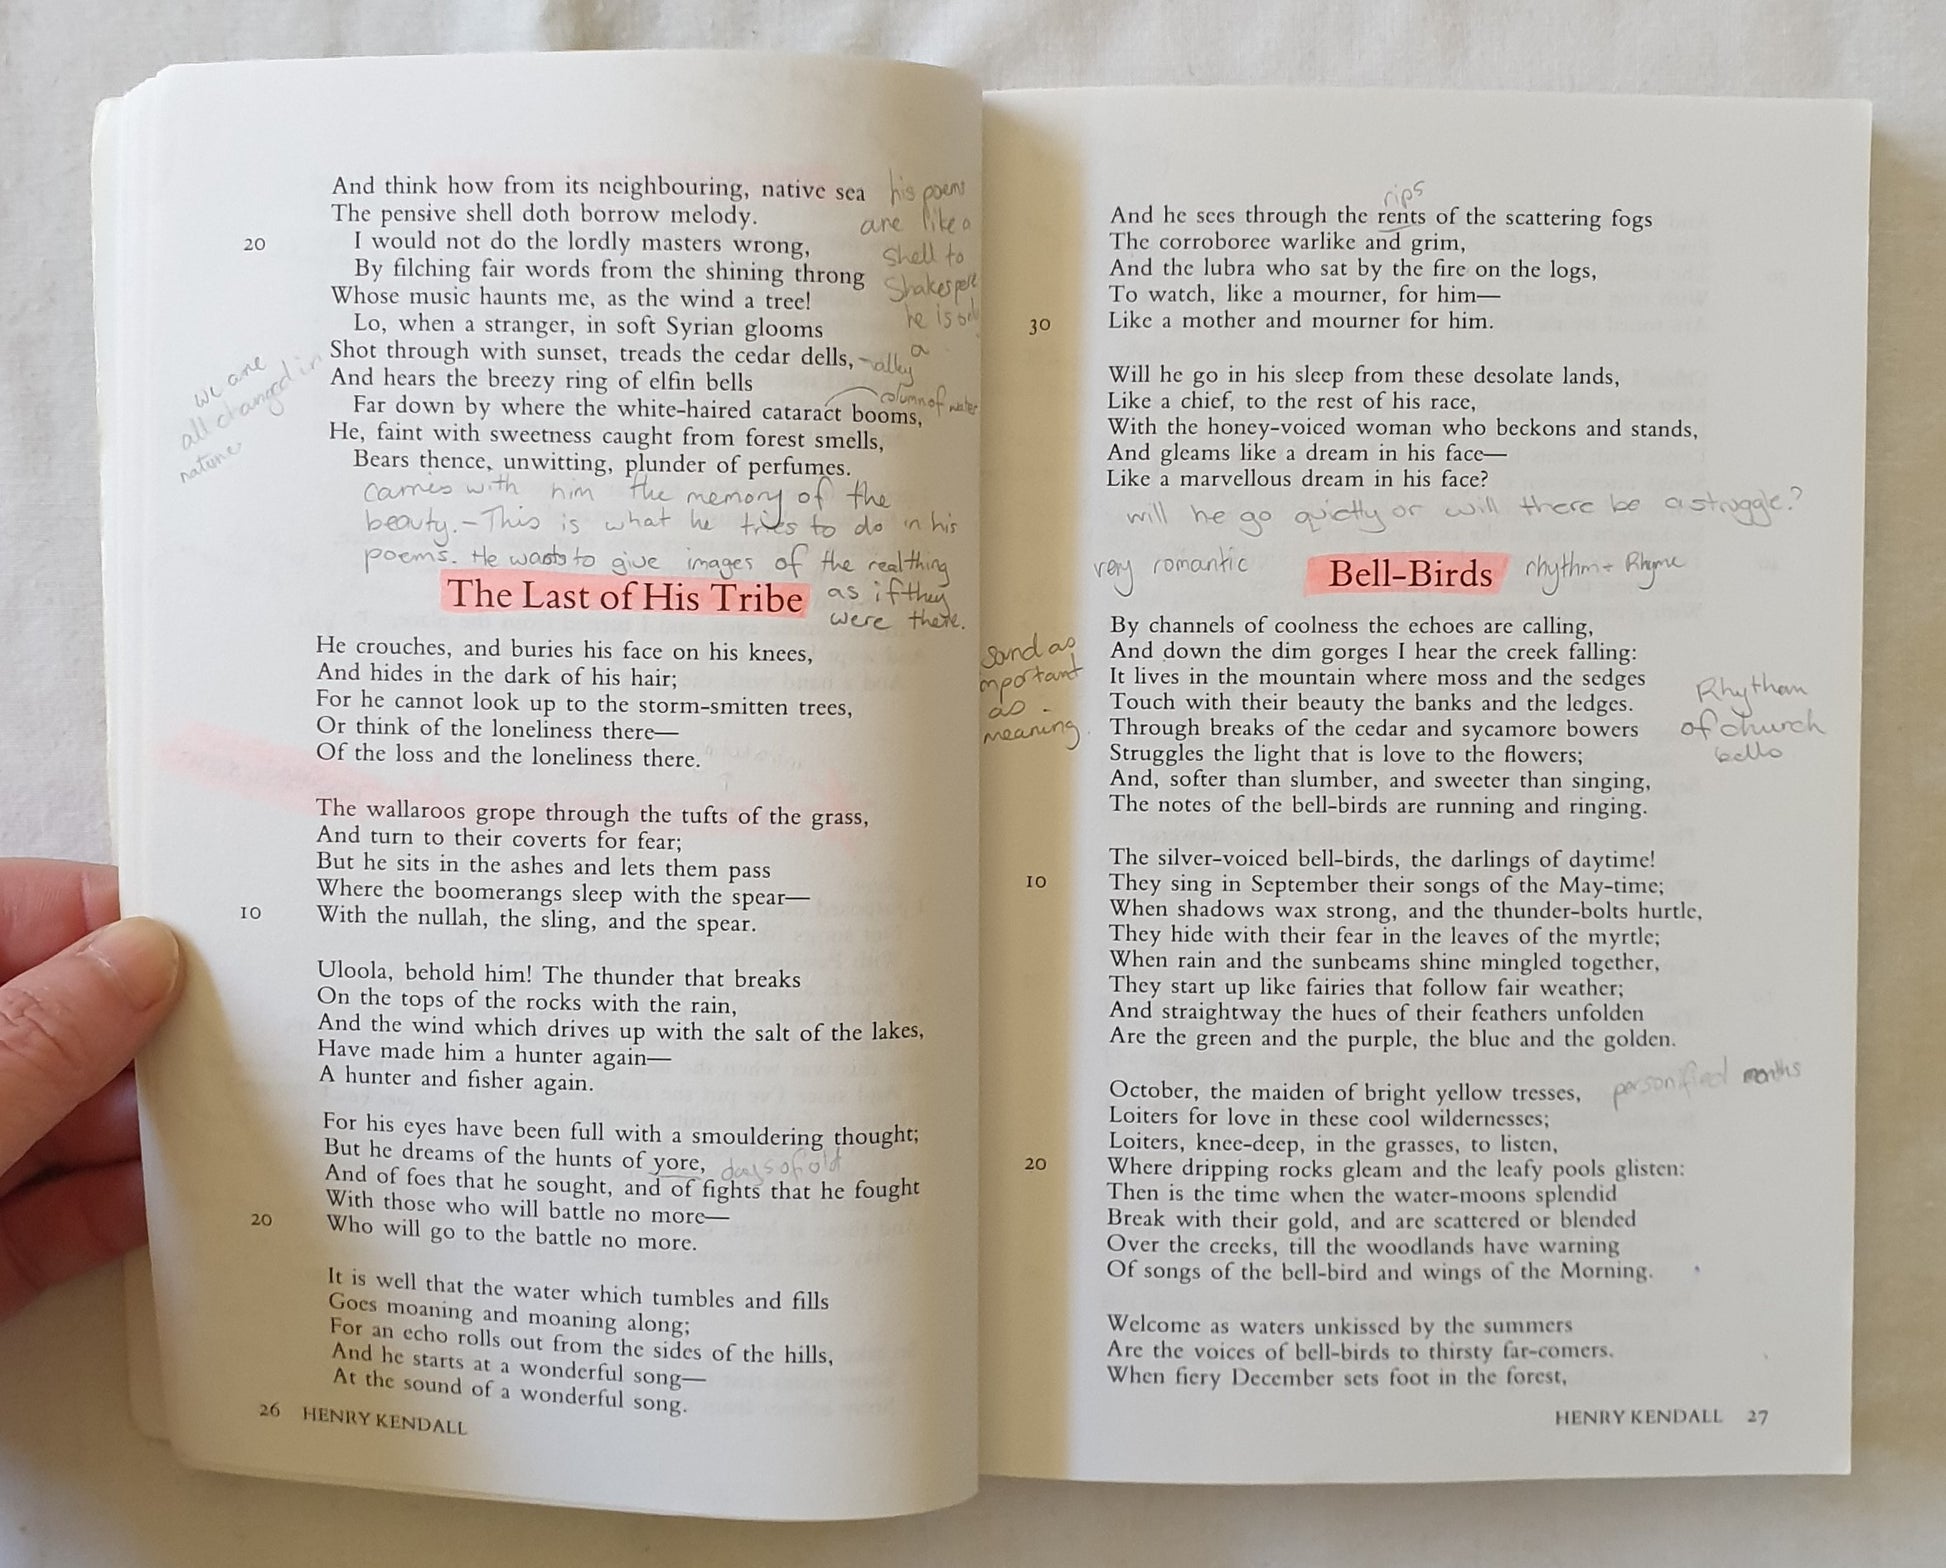 And think how from its neighbouring, native sea
his poems
The pensive shell doth borrow melody.
are like a
20 I would not do the lordly masters wrong,
shell to
By filching fair words from the shining throng
Shakespere
Whose music haunts me, as the wind a tree!
he is only
a
Lo, when a stranger, in soft Syrian glooms
Shot through with sunset, treads the cedar dells,
And hears the breezy ring of elfin bells
column of water
we are
all changed in
nature
Far down by where the white-haired cataract booms,
He, faint with sweetness caught from forest smells,
Bears thence, unwitting, plunder of perfumes.
carries with him the memory of the
beauty. - This is what he tries to do in his
poems. He wants to give images of the real thing
as if they
were there.
The Last of His Tribe
He crouches, and buries his face on his knees,
And hides in the dark of his hair;
For he cannot look up to the storm-smitten trees,
Or think of the loneliness there—
Of the loss and the loneliness there.
The wallaroos grope through the tufts of the grass,
And turn to their coverts for fear;
But he sits in the ashes and lets them pass
Where the boomerangs sleep with the spear—
10 With the nullah, the sling, and the spear.
Uloola, behold him! The thunder that breaks
On the tops of the rocks with the rain,
And the wind which drives up with the salt of the lakes,
Have made him a hunter again—
A hunter and fisher again.
For his eyes have been full with a smouldering thought;
But he dreams of the hunts of yore,
days of old
And of foes that he sought, and of fights that he fought
With those who will battle no more—
20 Who will go to the battle no more.
It is well that the water which tumbles and fills
Goes moaning and moaning along;
For an echo rolls out from the sides of the hills,
And he starts at a wonderful song—
At the sound of a wonderful song.
26 HENRY KENDALL
rips
And he sees through the rents of the scattering fogs
The corroboree warlike and grim,
And the lubra who sat by the fire on the logs,
To watch, like a mourner, for him—
30 Like a mother and mourner for him.
Will he go in his sleep from these desolate lands,
Like a chief, to the rest of his race,
With the honey-voiced woman who beckons and stands,
And gleams like a dream in his face—
Like a marvellous dream in his face?
will he go quietly or will there be a struggle?
very romantic
Bell-Birds
rhythm + Rhyme
By channels of coolness the echoes are calling,
And down the dim gorges I hear the creek falling:
It lives in the mountain where moss and the sedges
Touch with their beauty the banks and the ledges.
Through breaks of the cedar and sycamore bowers
Struggles the light that is love to the flowers;
And, softer than slumber, and sweeter than singing,
The notes of the bell-birds are running and ringing.
sound as
important
as
meaning.
Rhythem
of church
bells
The silver-voiced bell-birds, the darlings of daytime!
10 They sing in September their songs of the May-time;
When shadows wax strong, and the thunder-bolts hurtle,
They hide with their fear in the leaves of the myrtle;
When rain and the sunbeams shine mingled together,
They start up like fairies that follow fair weather;
And straightway the hues of their feathers unfolden
Are the green and the purple, the blue and the golden.
October, the maiden of bright yellow tresses,
personified months
Loiters for love in these cool wildernesses;
Loiters, knee-deep, in the grasses, to listen,
20 Where dripping rocks gleam and the leafy pools glisten:
Then is the time when the water-moons splendid
Break with their gold, and are scattered or blended
Over the creeks, till the woodlands have warning
Of songs of the bell-bird and wings of the Morning.
Welcome as waters unkissed by the summers
Are the voices of bell-birds to thirsty far-comers.
When fiery December sets foot in the forest,
HENRY KENDALL 27